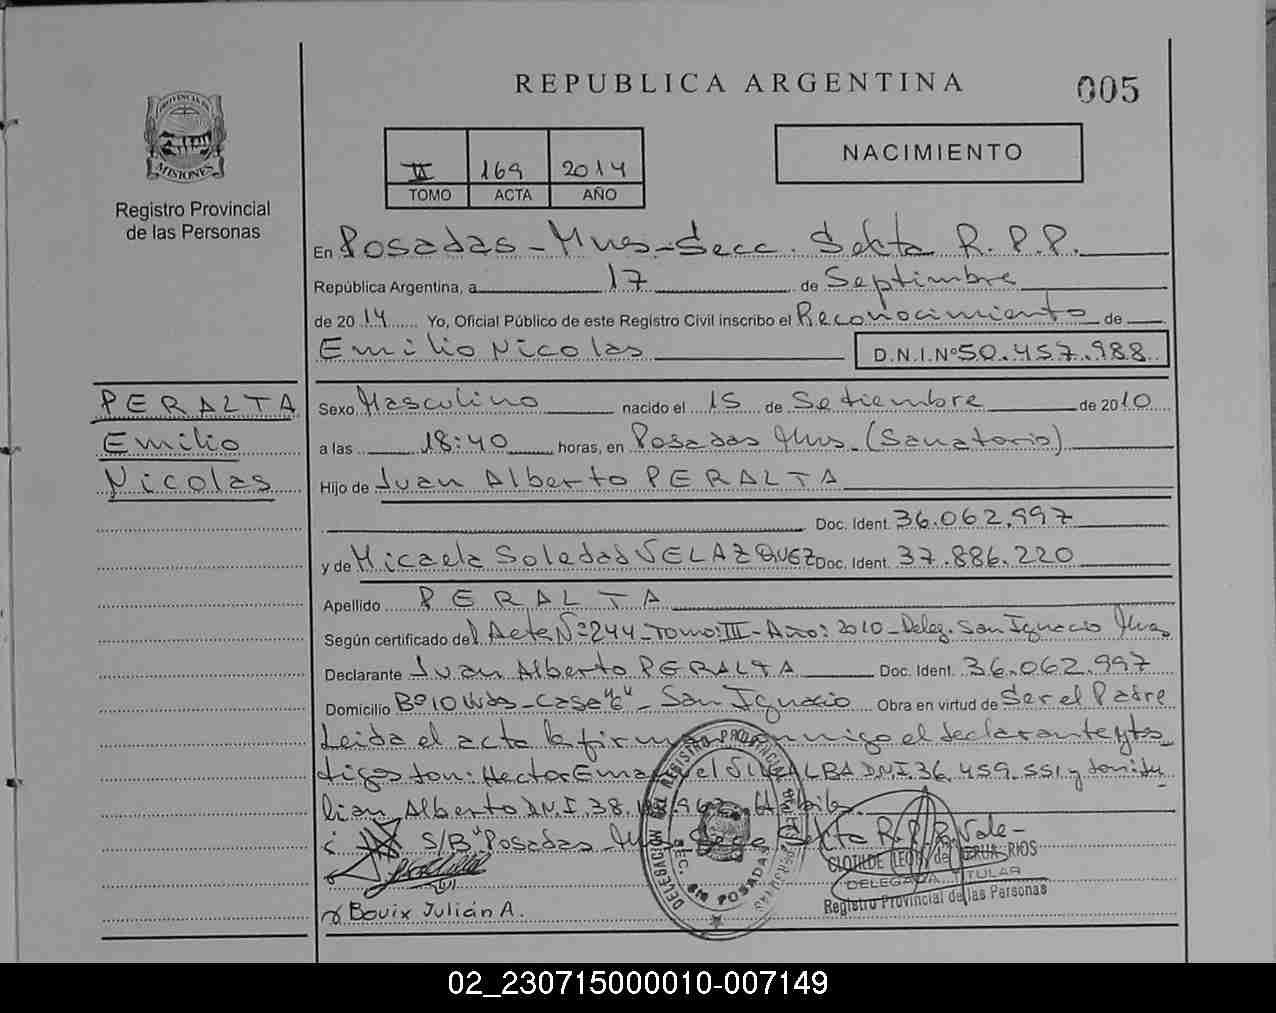 REPUBLICA ARGENTINA
005
PROVINCIA DE
MISIONES
Registro Provincial
de las Personas
II 169 2014
TOMO ACTA AÑO
NACIMIENTO
En Posadas - Mnes - Secc. Sexta R.P.P.
República Argentina, a 17 de Septimbre
de 2014 Yo, Oficial Público de este Registro Civil inscribo el Reconocimiento de
Emilio Nicolas D.N.I.Nº 50.457.988
PERALTA
Emilio
Nicolas
Sexo Masculino nacido el 15 de Setiembre de 2010
a las 18:40 horas, en Posadas Mns. (Sanatorio)
Hijo de Juan Alberto PERALTA
Doc. Ident. 36.062.997
y de Micaela Soledad VELAZQUEZ Doc. Ident. 37.886.220
Apellido PERALTA
Según certificado del Acta Nº 244 - Tomo: III - Año: 2010 - Deleg. San Ignacio Mnes
Declarante Juan Alberto PERALTA Doc. Ident. 36.062.997
Domicilio Bº 10 Vvds - Casa "6" - San Ignacio Obra en virtud de Ser el Padre
Leida el acta la firma conmigo el declarante y ts
tigos son: Hector Ema el VILLALBA D.N.I. 36.459.551 y
lian Alberto D.N.I. 38. 962
S/B "Posadas Secc Sexta R.P.P. Vale-
CLOTILDE RIOS
DELEGADA TITULAR
Registro Provincial de las Personas
DELEGACION DEL REGISTRO PROVINCIAL DE LAS PERSONAS
SEC. 6ta POSADAS
Bouix Julián A.
02_230715000010-007149